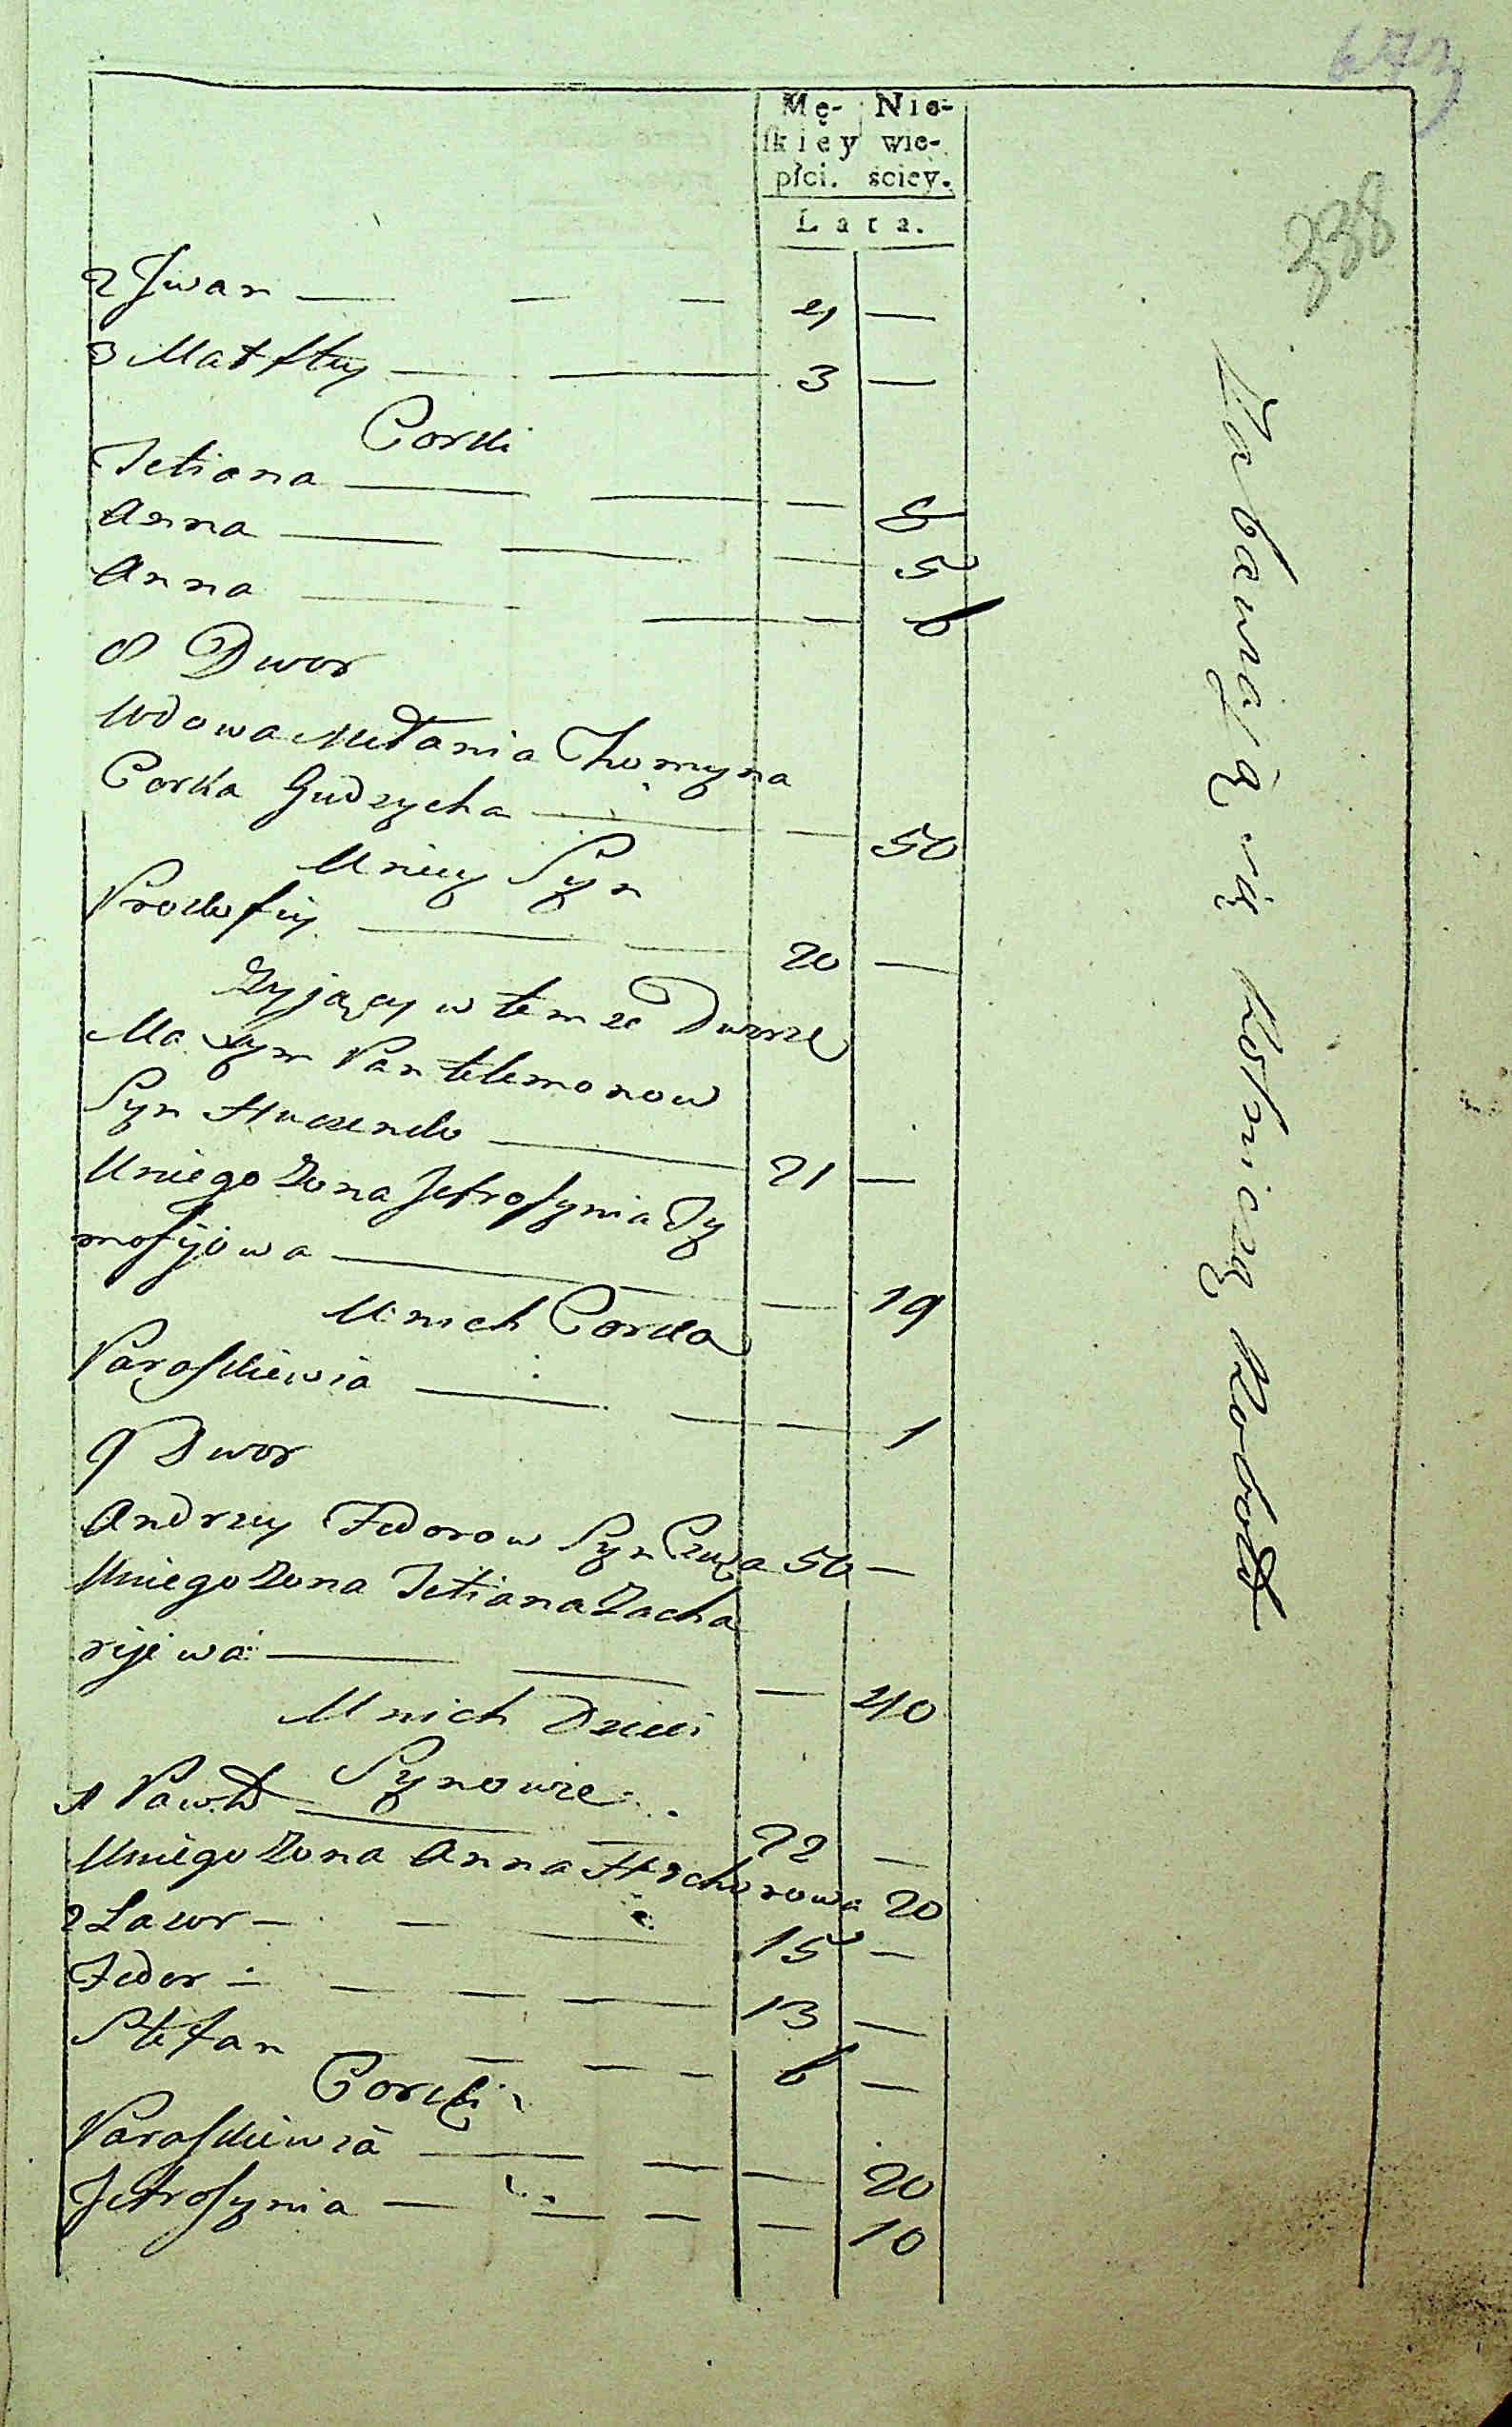 673
338
Mę- Nie-
ſkiey wie-
płci. ściey.
Lata.
2 Jwan — — — 4 —
3 Matftey — — 3 —
Corki
Tetiana — — — 8
Anna — — — 5
Anna — — — 6
8 Dwor
Wdowa Mełania Thomyna
Corka Gudzycha — — 50
Uniey Syn
Prokofiy — — 20 —
Zyjący w temze Dworze
Maxym Pantelemonow
Syn Huczenko — 21 —
Uniego Zona Jefrosynia Ty
mofijowa — — — 19
Unich Corka
Paraskiewia — — — 1
9 Dwor
Andrzey Fedorow Syn 50 —
Uniego Zona Tetiana Zacha
rijewa — — — 40
Unich Dzieci
Synowie
1 Paweł — — 22 —
Uniego Zona Anna Hrehorowa 20
2 Lawr — — — 15 —
Fedor — — — — 13 —
Stefan — — — — 6 —
Corki
Paraskiewia — — — 20
Jefrosynia — — — — 10
Zabawiaią się Rolniczą Robotą